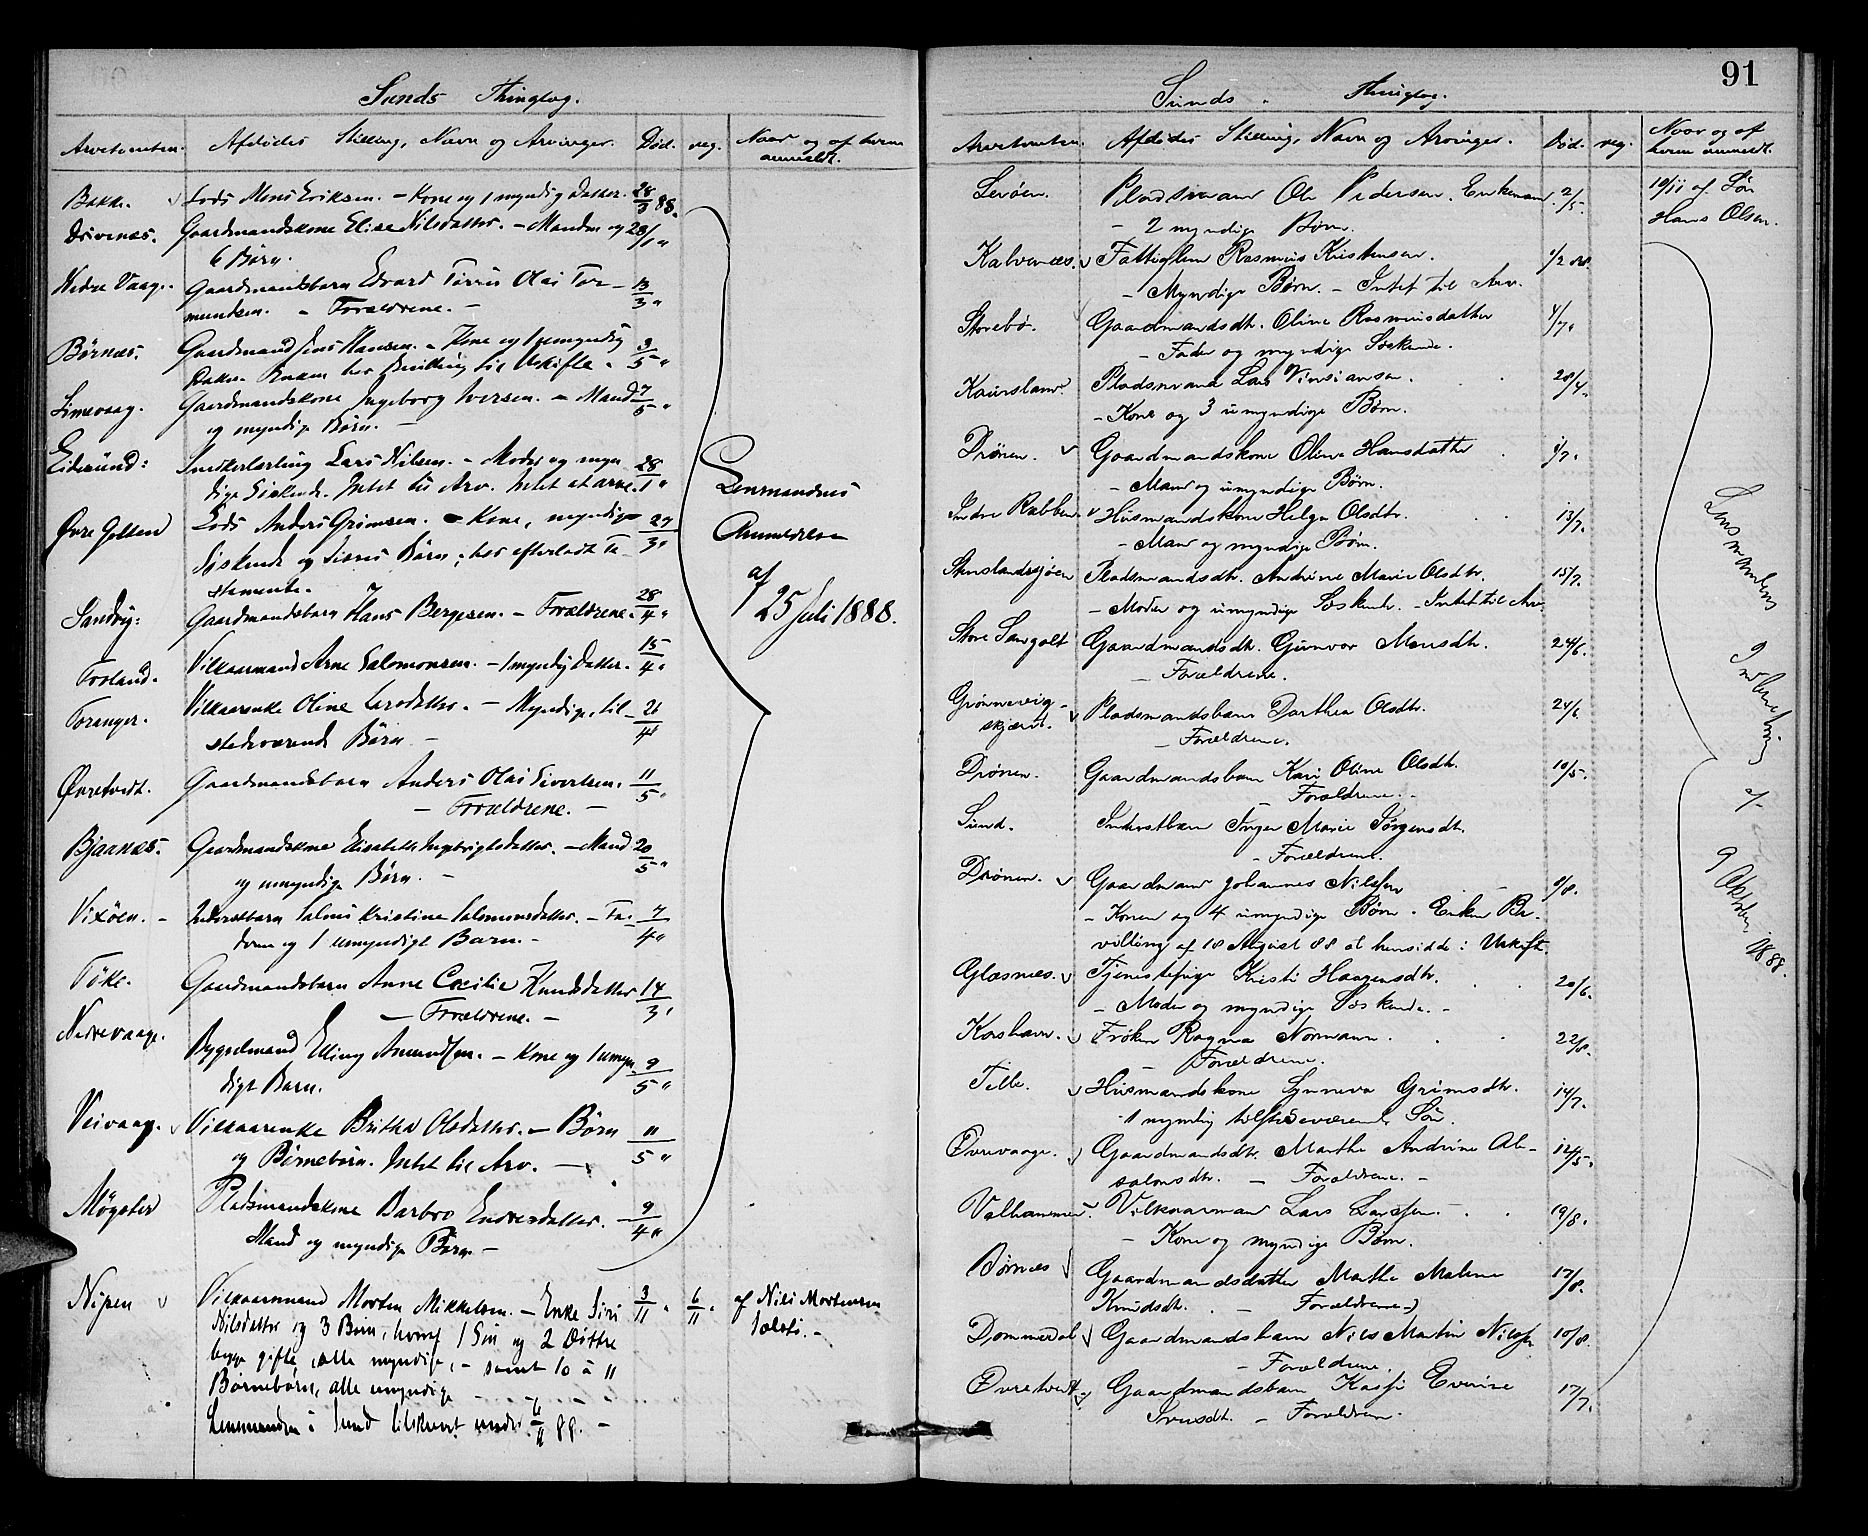 Sunds Thinglag.
Arvetomten. Afdødes Stilling, Navn og Arvinger. Død. reg. Naar og af hvem anmeldt.
Bakke. Lods Mons Eriksen. – Kone og 1 myndig Datter. 28/3 88.
Drivenæs. Gaardmandskone Elise Nilsdatter. – Manden og 28/1 "
6 Børn.
Nedre Vaag. Gaardmandsbarn Edvard Torris Olai Tor- 13/3 "
mundsen. – Forældrene. –
Børnæs. Gaardmand Jens Hansen. – Kone og 1 umyndig 3/5 "
Datter. Enken har Bevilling til Uskifte.
Limevaag. Gaardmandskone Ingeborg Iversen. – Mand 7/5 "
og myndige Børn. –
Eidesund: Snedkerlærling Lars Nilsen. – Moder og myn- 28/1 "
dige Sødskende. Intet til Arv. Intet at arve.
Øvre Golten Lods Anders Grimsen. – Kone, myndige 27/3 "
Søskende og Disses Børn; har efterladt Te-
stamente.
Sandvig: Gaardmandsbarn Hans Bergesen. – Forældrene. 28/4 "
Forland. Vilkaarmand Arne Salomonsen. – 1 myndig Datter. 15/4 "
Toranger. Vilkaarenke Oline Larsdatter. – Myndige, til- 21/4
stedeværende Børn –
Øvretvedt. Gaardmandsbarn Anders Olai Sivertsen. – 11/5 "
– Forældrene. –
Bjarnæs. Gaardmandskone Elisabeth Ingebrigtsdatter. – Mand 20/5 "
og umyndige Børn. –
Vixøen. – Inderstbarn Salmi Kristine Salomonsdatter. – Fa- 7/4 "
deren og 1 umyndigt Barn. –
Töke. Gaardmandsbarn Anne Cecilie Knudsdatter 14/3 "
– Forældrene. –
Nedrevaage. Bygselmand Elling Amundsen. – Kone og 1 umyn- 9/5 "
digt Barn.
Veivaag. Vilkaarenke Britha Olsdatter. – Børn 11/5 "
og Børnebørn. Intet til Arv. –
Møgster Pladsmandskone Barbro Endresdatter. – 9/4 "
Mand og myndige Børn –
Lensmandens
Anmeldelse
af
25 Juli 1888.
Nipen Vilkaarmand Morten Mikkelsen. – Enke Siri 3/11 " 6/11 " af Nils Mortensen
Nilsdatter og 3 Børn, hvoraf 1 Søn og 2 Døttre
begge gifte, alle myndige, – samt 10 à 11
Børnebørn, alle umyndige
Lensmanden i Sund tilskrevet under 6/11 88. –
91
Sunds Thinglag.
Arvetomten. Afdødes Stilling, Navn og Arvinger. Død. reg. Naar og af hvem anmeldt.
Lerøen. Pladsmand Ole Pedersen. Enkemand 2/5. 10/11 af Søn
– 2 myndige Børn. Hans Olsen.
Kalvenæs. Fattiglem Rasmus Kristensen. 1/2 88.
– Myndige Børn. – Intet til Arv.
Storebø. Gaardmandsdtr. Oline Rasmusdatter 4/7.
– Fader og myndige Søskende.
Kausland Pladsmand Lars Vinsiansen. 28/4.
– Kone og 3 umyndige Børn.
Drönen. Gaardmandskone Oline Hansdatter 1/7.
– Mand og umyndige Børn.
Indre Rabben. Husmandskone Helga Olsdtr. 13/7.
– Mand og myndige Børn.
Stenslandssjøen Pladsmandsdtr. Andrine Marie Olsdtr. 15/7.
– Moder og umyndige Søskende. – Intet til Arv.
Store Sangolt Gaardmandsdtr. Gunvor Monsdtr. 24/6.
– Forældrene.
Grønnevig- Pladsmandsbarn Dorthea Olsdtr. 24/6
skjæret. – Forældrene.
Drönen. Gaardmandsbarn Kari Oline Olsdtr. 10/5.
– Forældrene. –
Sund. Inderstbarn Inger Marie Jörgensdtr.
– Forældrene.
Drönen. Gaardmand Johannes Nilssen 8/8.
– Konen og 4 umyndige Børn. Enken Be-
villing af 18 August 88 at hensidde i Uskifte.
Glæsnæs. Tjenestepige Kristi Haagensdtr. 20/6.
– Moder og myndige Søskende. –
Korshavn. Frøken Ragna Normann. 22/8.
– Forældrene.
Telle. Husmandskone Synneva Grimsdtr. 14/7.
– 1 myndig tilstedeværende Søn.
Øvrevaage. Gaardmandsdtr. Marthe Andrine Ab- 12/5.
salonsdtr. – Forældrene. –
Valhammer. Vilkaarmand Lars Larsen. 19/8.
– Kone og myndige Børn.
Børnæs Gaardmandsdatter Marthe Malene 17/8.
Knudsdtr. – Forældrene –
Dommedal Gaardmandsbarn Nils Martin Nilssen 10/8.
– Forældrene.
Øvretvedt. Gaardmandsbarn Kasfi Evine 17/7.
Svensdtr. – Forældrene.
Lensmandens
Indberetning
af
9 Oktober 1888.